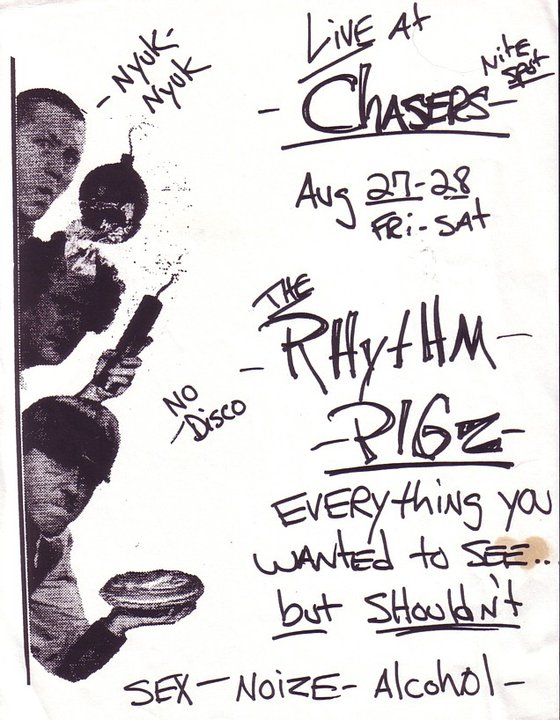 - Nyuk-
Nyuk
Live At
- Chasers -
Nite
Spot
Aug 27-28
Fri-Sat
The
- Rhythm -
- Pigz -
No
Disco
Everything you
wanted to see..
but shouldn't
Sex - Noize - Alcohol -